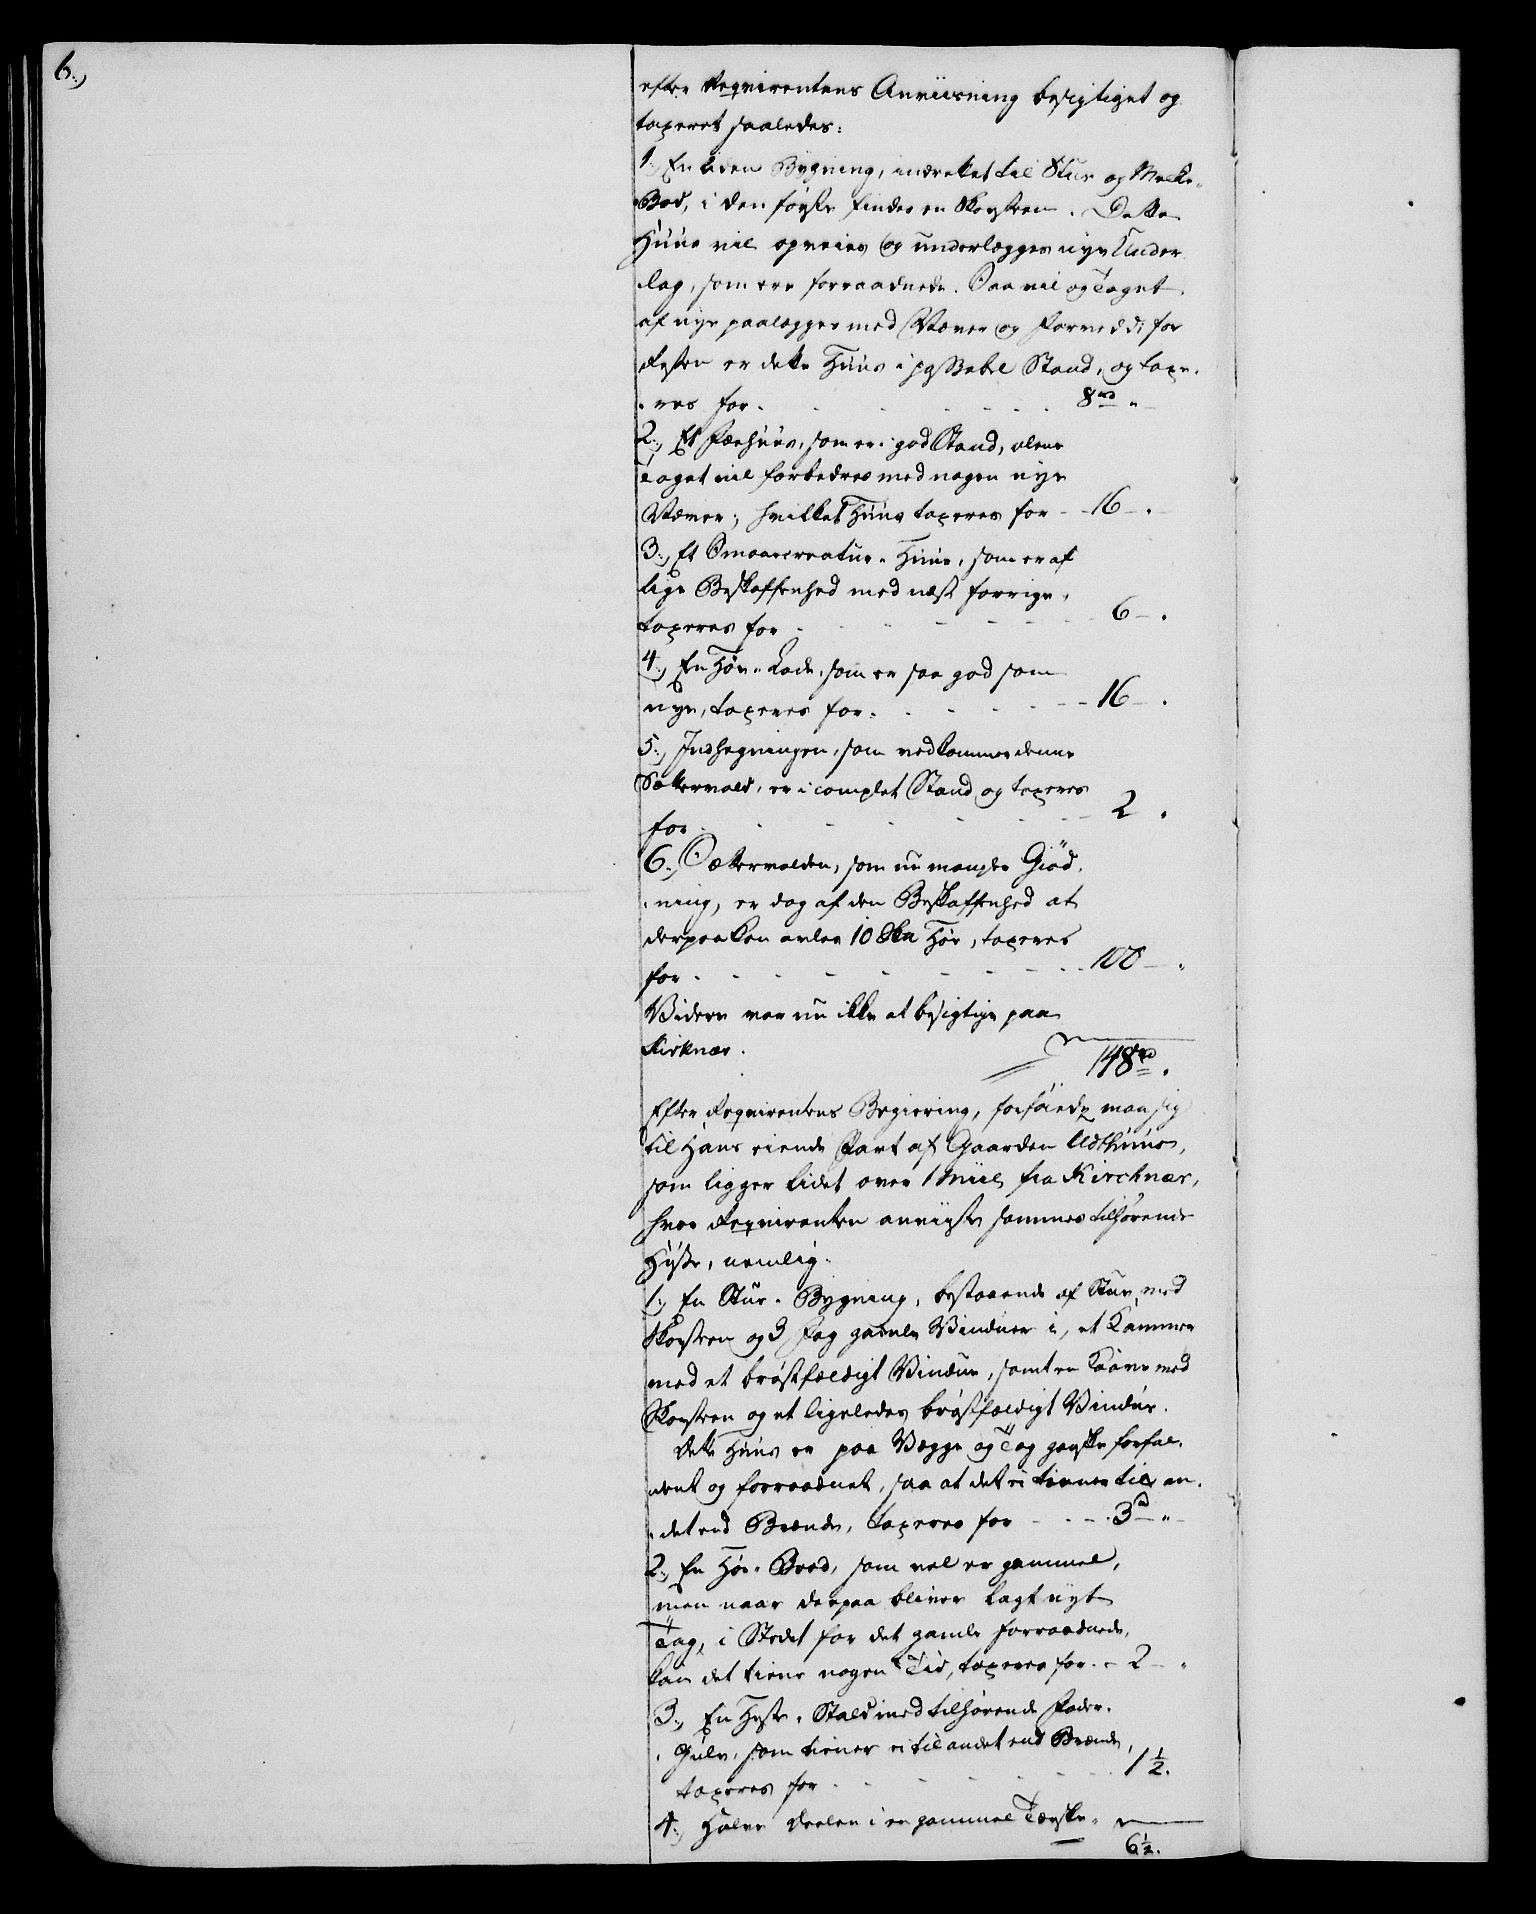 6.,
efter Reqvirentens Anviisning besigtiget og
taxeret saaledes:
1., En liden Bygning, indrettet til Stue og Melke-
Bod, i den første findes en Skorsteen. Dette
Huus vil opveies og underlægges nye Under
lag, som ere forraadnede. Saa vil og Taget
af nye paalægges med Næver og Torv
Resten er dette Huus i passabel Stand, og taxe-
-res for . . . 8 rd "
2., Et Fæehuus, som er i god Stand, alene
Taget vil forbedres med nogen nye
Næver, hvilket Huus taxeres for - - 16 - .
3., Et Smaacreatur-Huus, som er af
lige Beskaffenhed med næst forrige,
taxeres for - - - 6 - .
4., En Høe-Lade, som er saa god som
nye, taxeres for - - - 16 - .
5., Indhegningen, som vedkommer denne
Sættervold, er i complet Stand og taxeres
for - - - 2 .
6., Sættervolden, som nu mangler Giød-
-ning, er dog af den Beskaffenhed at
derpaa kan avles 10 Høe, taxeres
for - - - 100 - "
Videre var nu ikke at besigtige paa
Kirknær.
148 rd .
Efter Reqvirentens Begiering, forføiede man sig
til hans eiende Part af Gaarden Udthuus,
som ligger lidet over 1 Miil fra Kirchnær,
hvor Reqvirenten anviiste sammes tilhørende
Huse, nemlig:
1., En Stue-Bygning, bestaaende af Stue, med
Skorsteen og 3 Fag gamle Vinduer i, et Kammer
med et brøstfældigt Vindue, samt en Kaave med
Skorsteen og et ligeledes brøstfældigt Vindue.
Dette Huus er paa Vægge og Tag ganske forfal-
dent og forraadnet, saa at det ei tiener til an-
-det end Brænde, taxeres for - - - 3 rd "
2., En Høe-Boed, som vel er gammel,
men naar derpaa bliver lagt nyt
Tag, i Stedet for det gamle forraadnede,
kan det tiene nogen Tid, taxeres for - - 2 - "
3., En Heste-Stald med tilhørende Foder-
-Gulv, som tiener ei til andet end Brænde,
taxeres for - - - 1 1/2.
4., Halve Deelen i en gammel Tærske-
6 1/2.